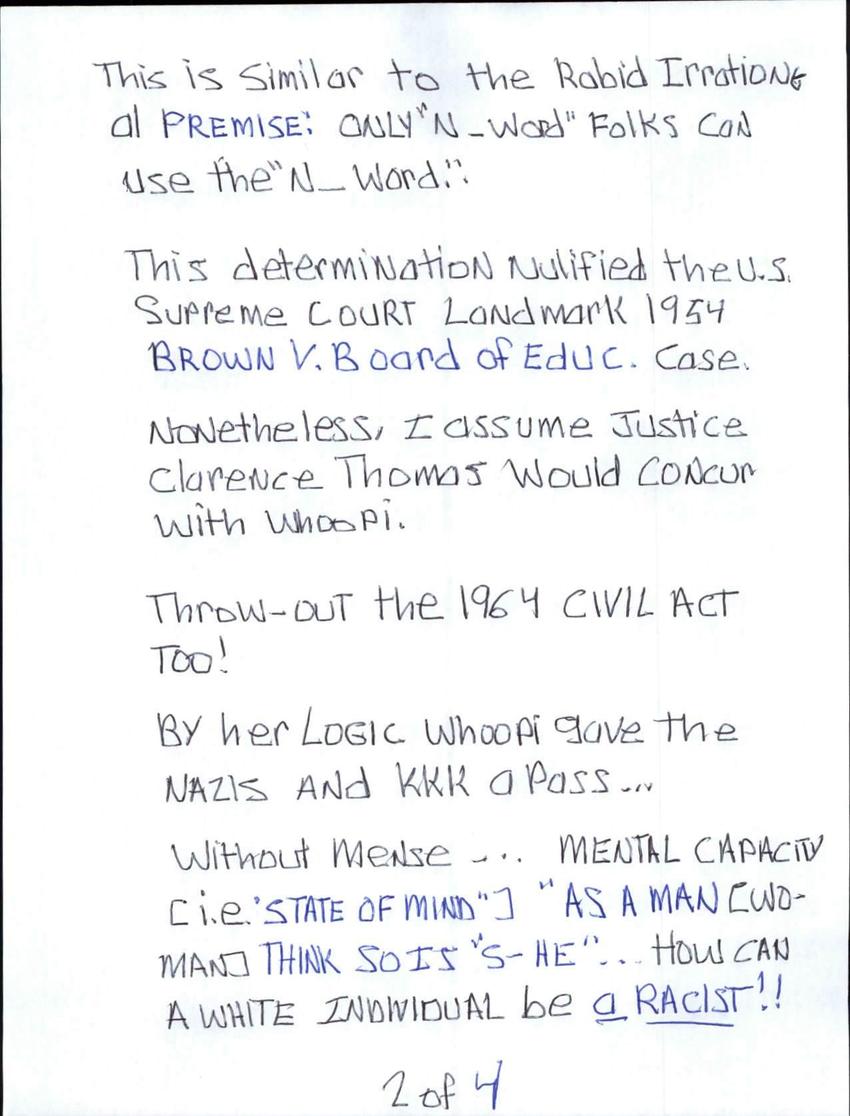 This is Similar to the Rabid Irration&
al PREMISE: ONLY "N_Word" Folks Can
use the "N_Word.".
This determination Nulified the U.S.
Supreme COURT Landmark 1954
BROWN V. Board of Educ. Case.
Nonetheless, I assume Justice
Clarence Thomas Would Concur
With Whoopi.
Throw-OUT the 1964 CIVIL ACT
TOO!
By her LOGIC Whoopi gave the
NAZIS AND KKK a Pass...
Without Mense ... MENTAL CAPACITY
[i.e. "STATE OF MIND"] "AS A MAN [WO-
MAN] THINK SO IS "S-HE"... HOW CAN
A WHITE INDIVIDUAL be a RACIST!!
2 of 4